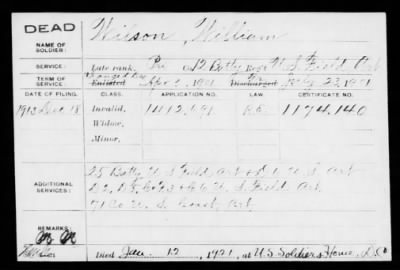 DEAD
Wilson, William
NAME OF SOLDIER:
SERVICE:
Late rank, Pvt Co. 12 Batty Regt U.S. Field Art
TERM OF SERVICE
Enlisted Apr 2, 1901 Discharged July 23, 1901
DATE OF FILING. CLASS. APPLICATION NO. LAW. CERTIFICATE NO.
1913 Dec 18 Invalid, 1412,691 1174,140
Widow,
Minor,
25 Batty U.S. Field Art
ADDITIONAL SERVICES:
U.S. Field Art
71 Co. U.S. Coast Art
REMARKS:
Died Jan. 12, 1921, at U.S. Soldiers Home, D.C.